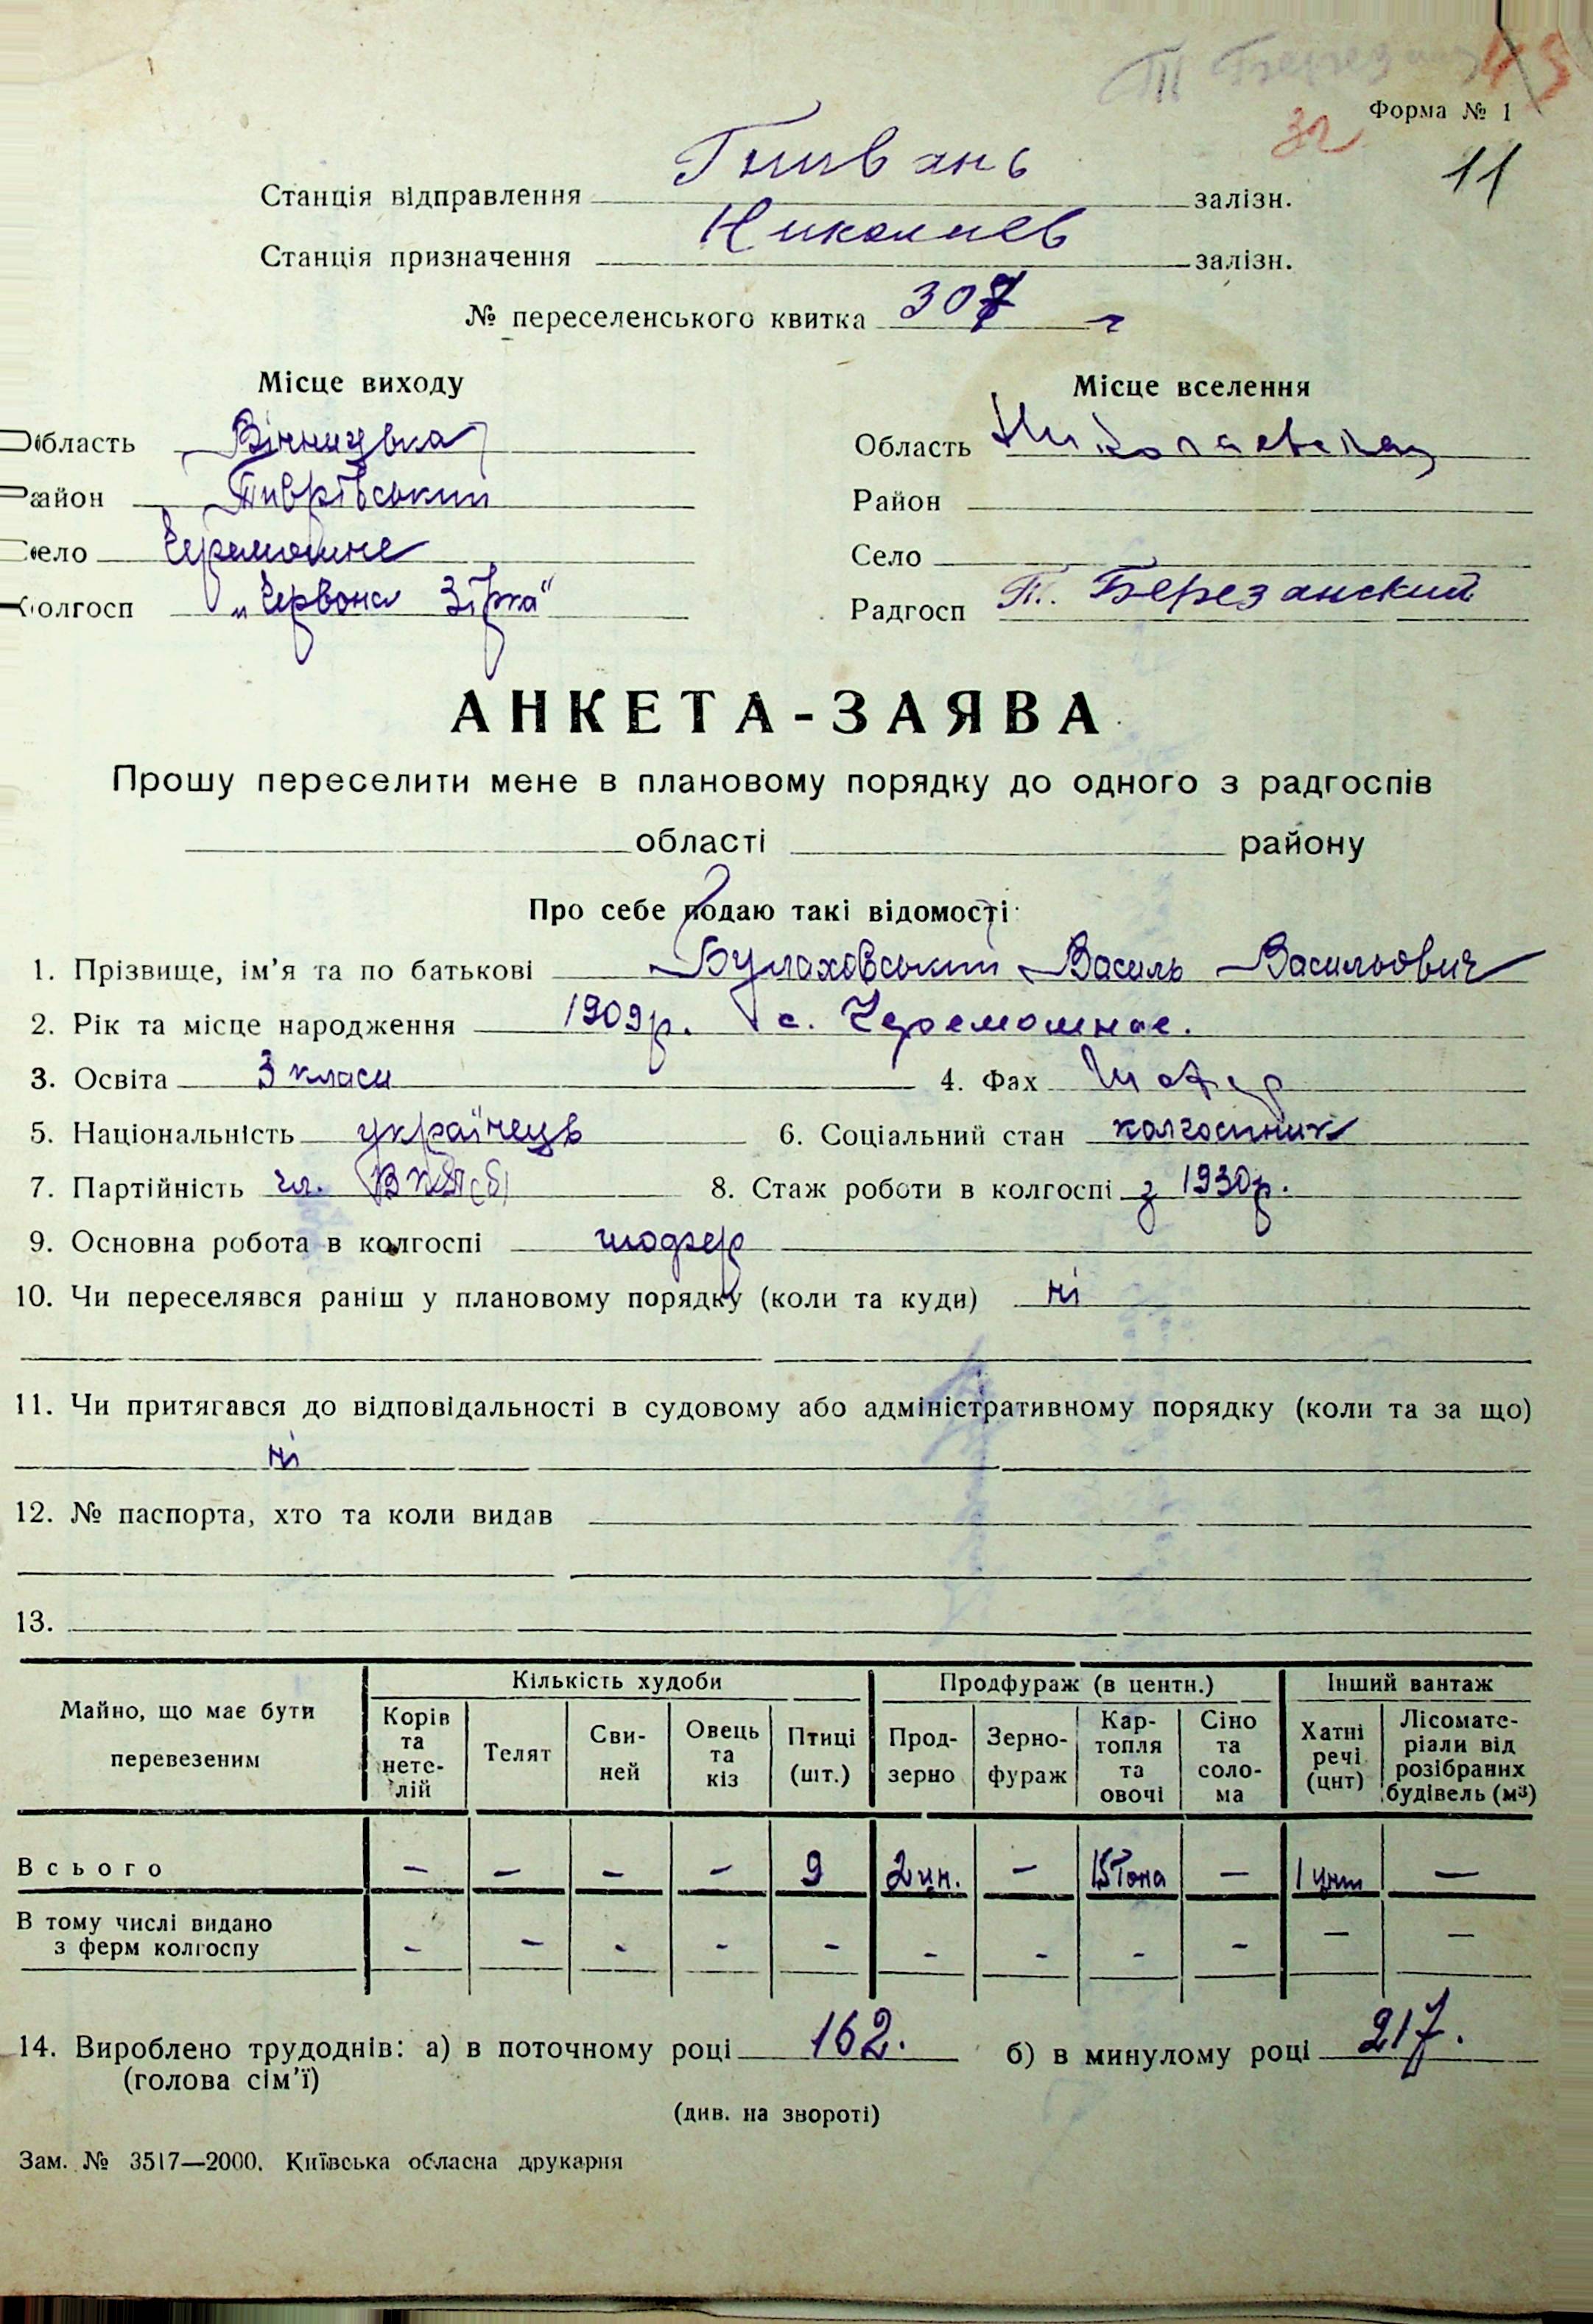 Т. Березан 43
Форма № 1
32
11
Станція відправлення Гнивань залізн.
Станція призначення Николаев залізн.
№ переселенського квитка 307
Місце виходу Місце вселення
Область Вінницька Область Николаевская
Район Тиврівський Район
Село Черемошне Село
Колгосп „Червона Зірка" Радгосп Т. Березанский
АНКЕТА-ЗАЯВА
Прошу переселити мене в плановому порядку до одного з радгоспів
області району
Про себе подаю такі відомості
1. Прізвище, ім'я та по батькові Булаховський Василь Васильович
2. Рік та місце народження 1909р. с. Черемошнае.
3. Освіта 3 класи 4. Фах Шофер
5. Національність українець 6. Соціальний стан колгоспник
7. Партійність чл. ВКП(б) 8. Стаж роботи в колгоспі з 1930р.
9. Основна робота в колгоспі шофер
10. Чи переселявся раніш у плановому порядку (коли та куди) ні
11. Чи притягався до відповідальності в судовому або адміністративному порядку (коли та за що)
ні
12. № паспорта, хто та коли видав
13.
Майно, що має бути перевезеним Кількість худоби Продфураж (в центн.) Інший вантаж
Корів та нетелій Телят Свиней Овець та кіз Птиці (шт.) Продзерно Зернофураж Картопля та овочі Сіно та солома Хатні речі (цнт) Лісоматеріали від розібраних будівель (м³)
Всього – – – – 9 2 цн. – 15 тона – 1 цнт –
В тому числі видано
з ферм колгоспу – – – – – – – – – – –
14. Вироблено трудоднів: а) в поточному році 162. б) в минулому році 217.
(голова сім'ї)
(див. на звороті)
Зам. № 3517—2000. Київська обласна друкарня